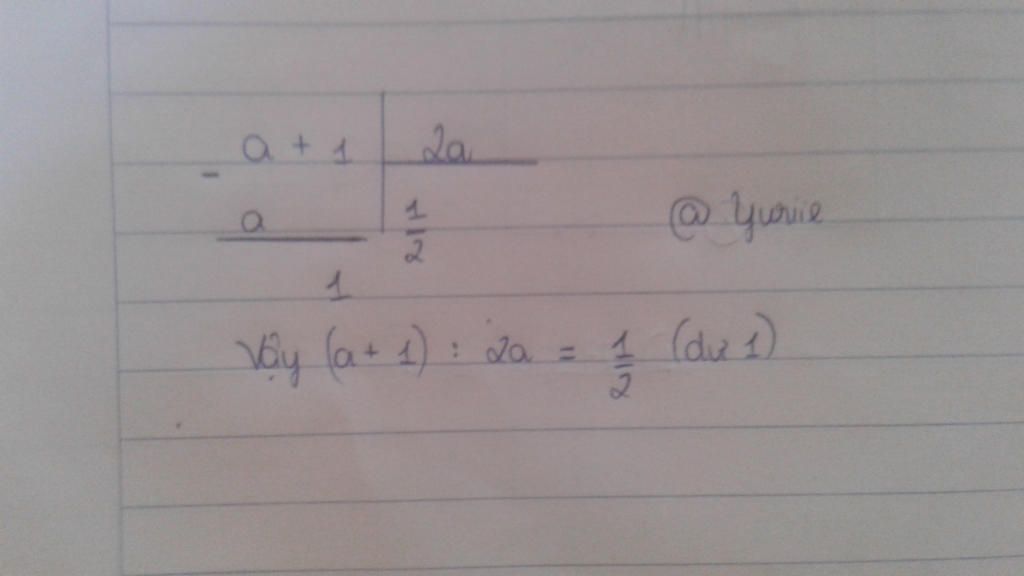 a + 1 | 2a
- a | 1/2
1
@ Yurie
Vậy (a + 1) : 2a = 1/2 (dư 1)